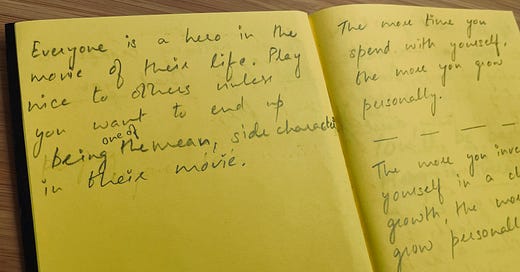 Everyone is a hero in the
movie of their life. Play
nice to others unless
you want to end up
being one of the mean, side character
in their movie.
The more time you
spend with yourself,
the more you grow
personally.
— — — —
The more you
yourself in a
growth, the more
grow personally